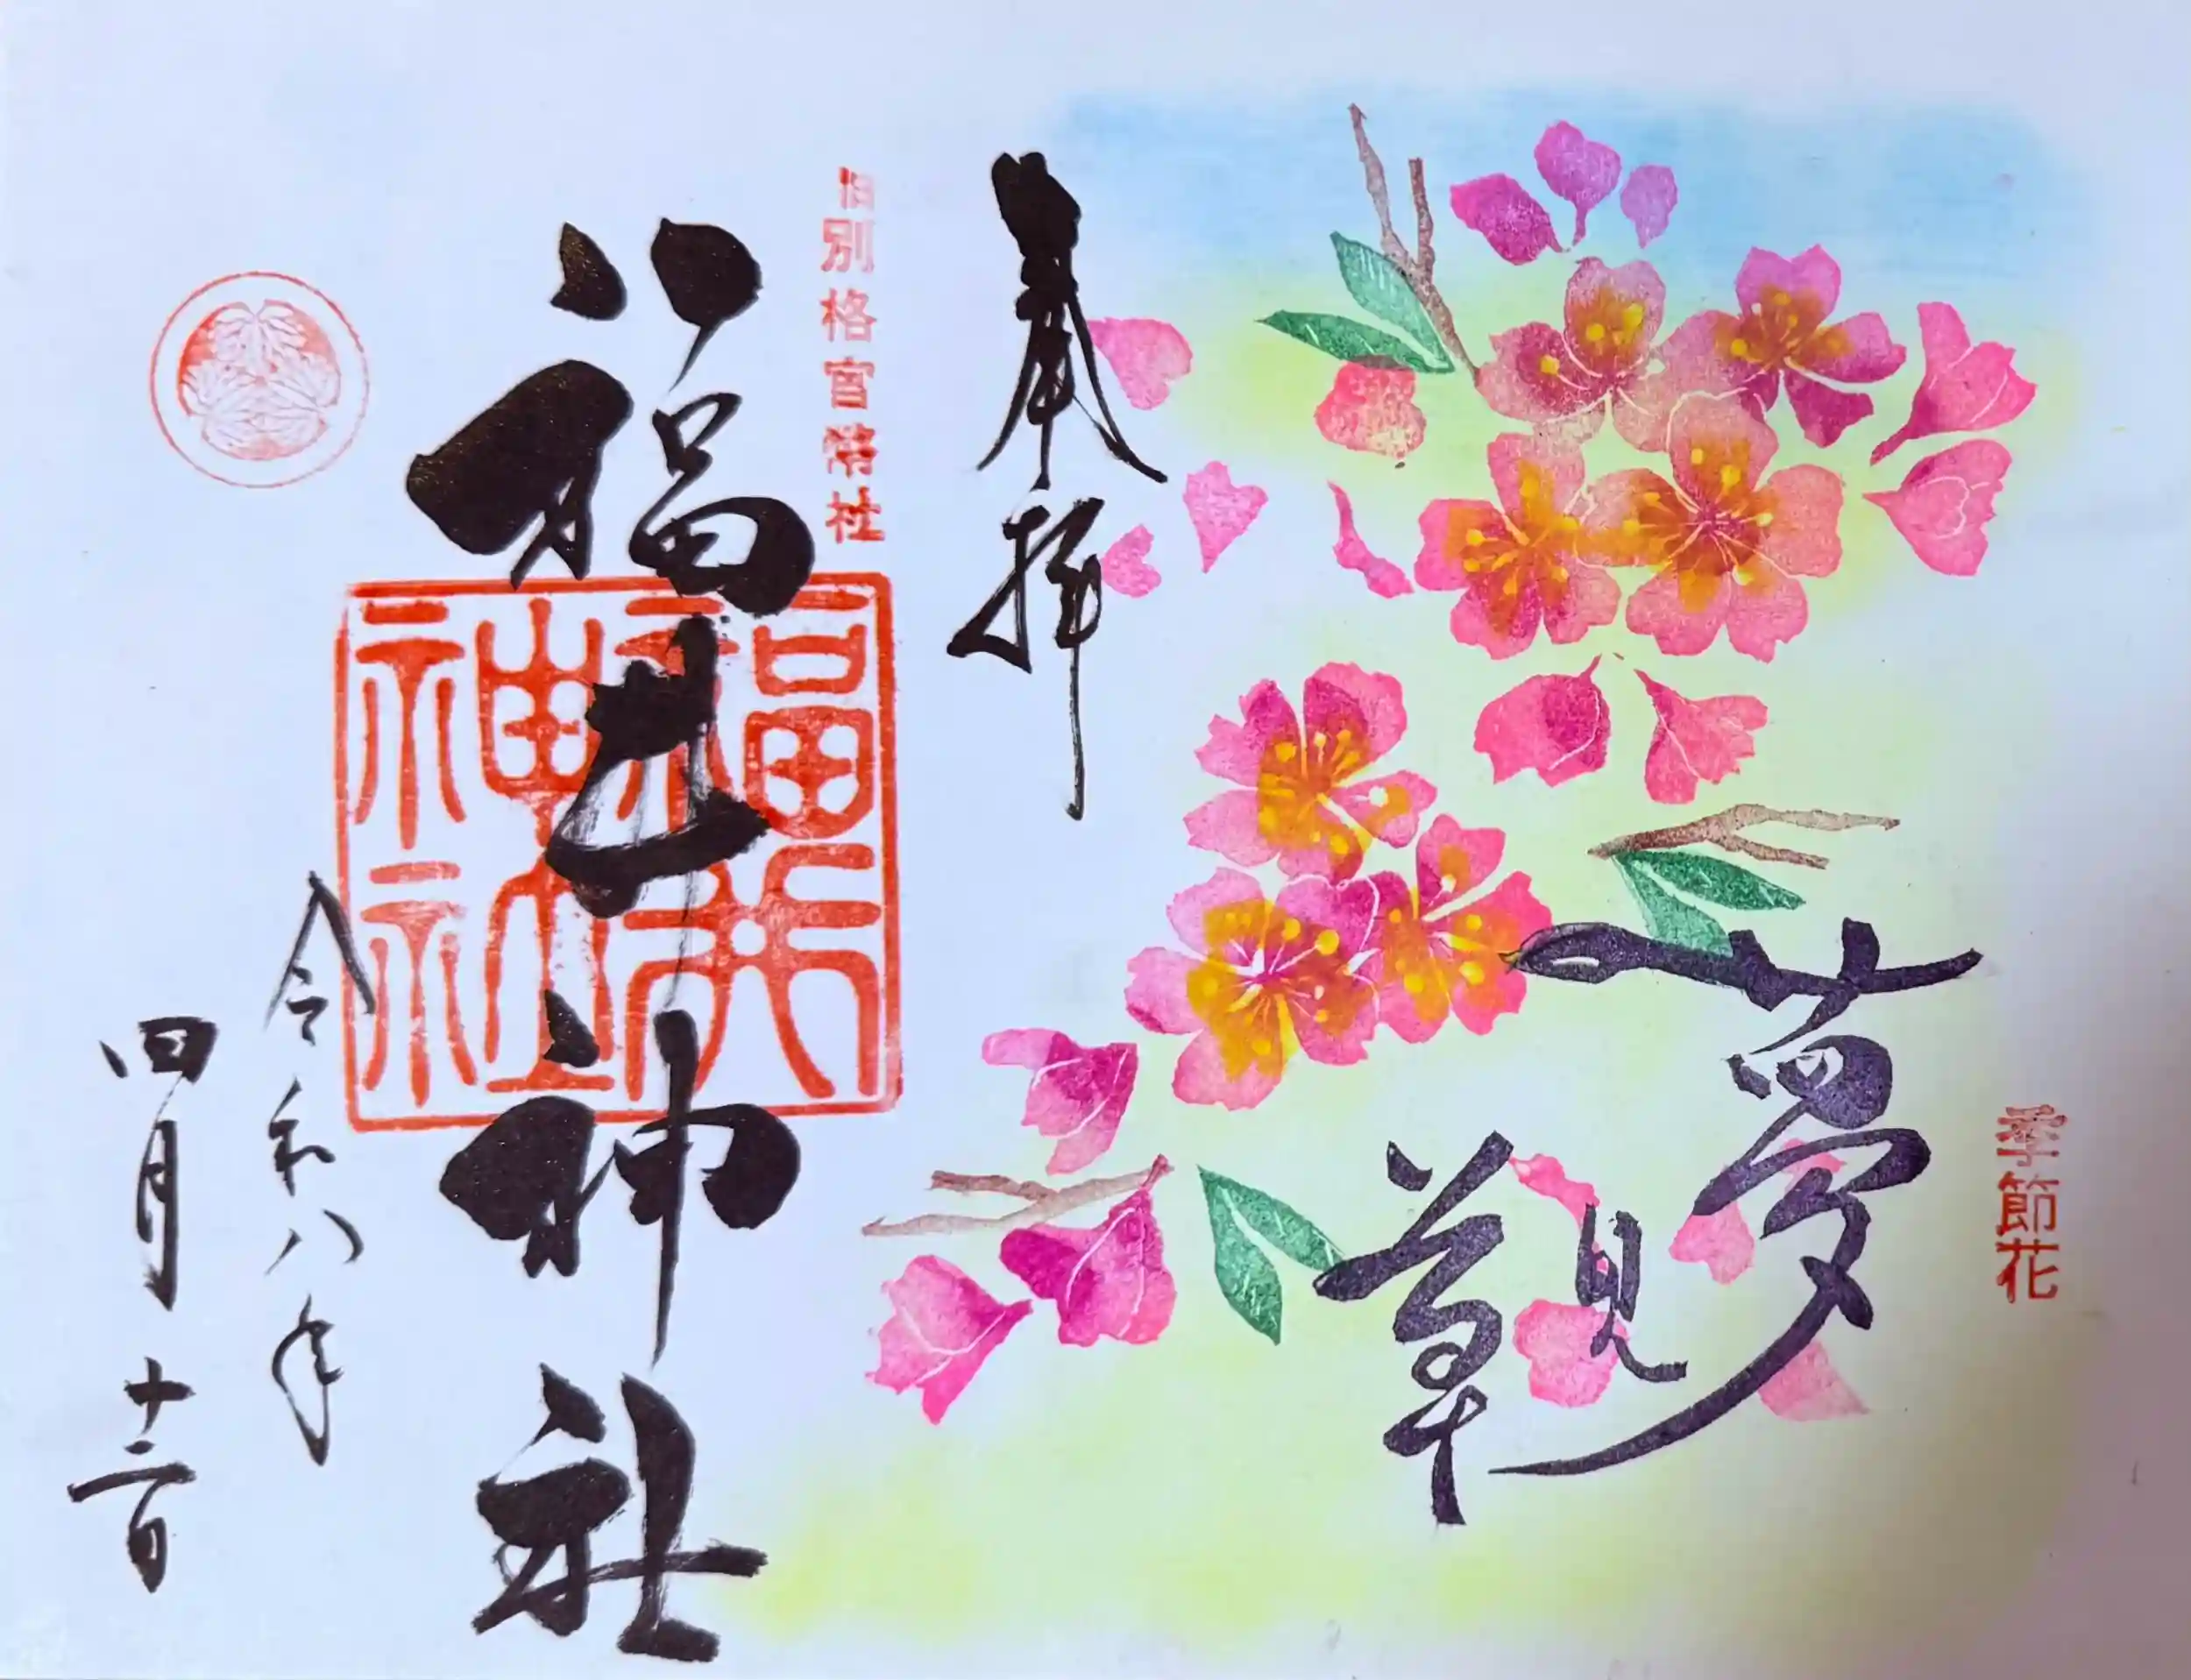 季節花
夢見草
奉拝
旧別格官幣社
福井神社
福井
神社
令和八年
四月十二日